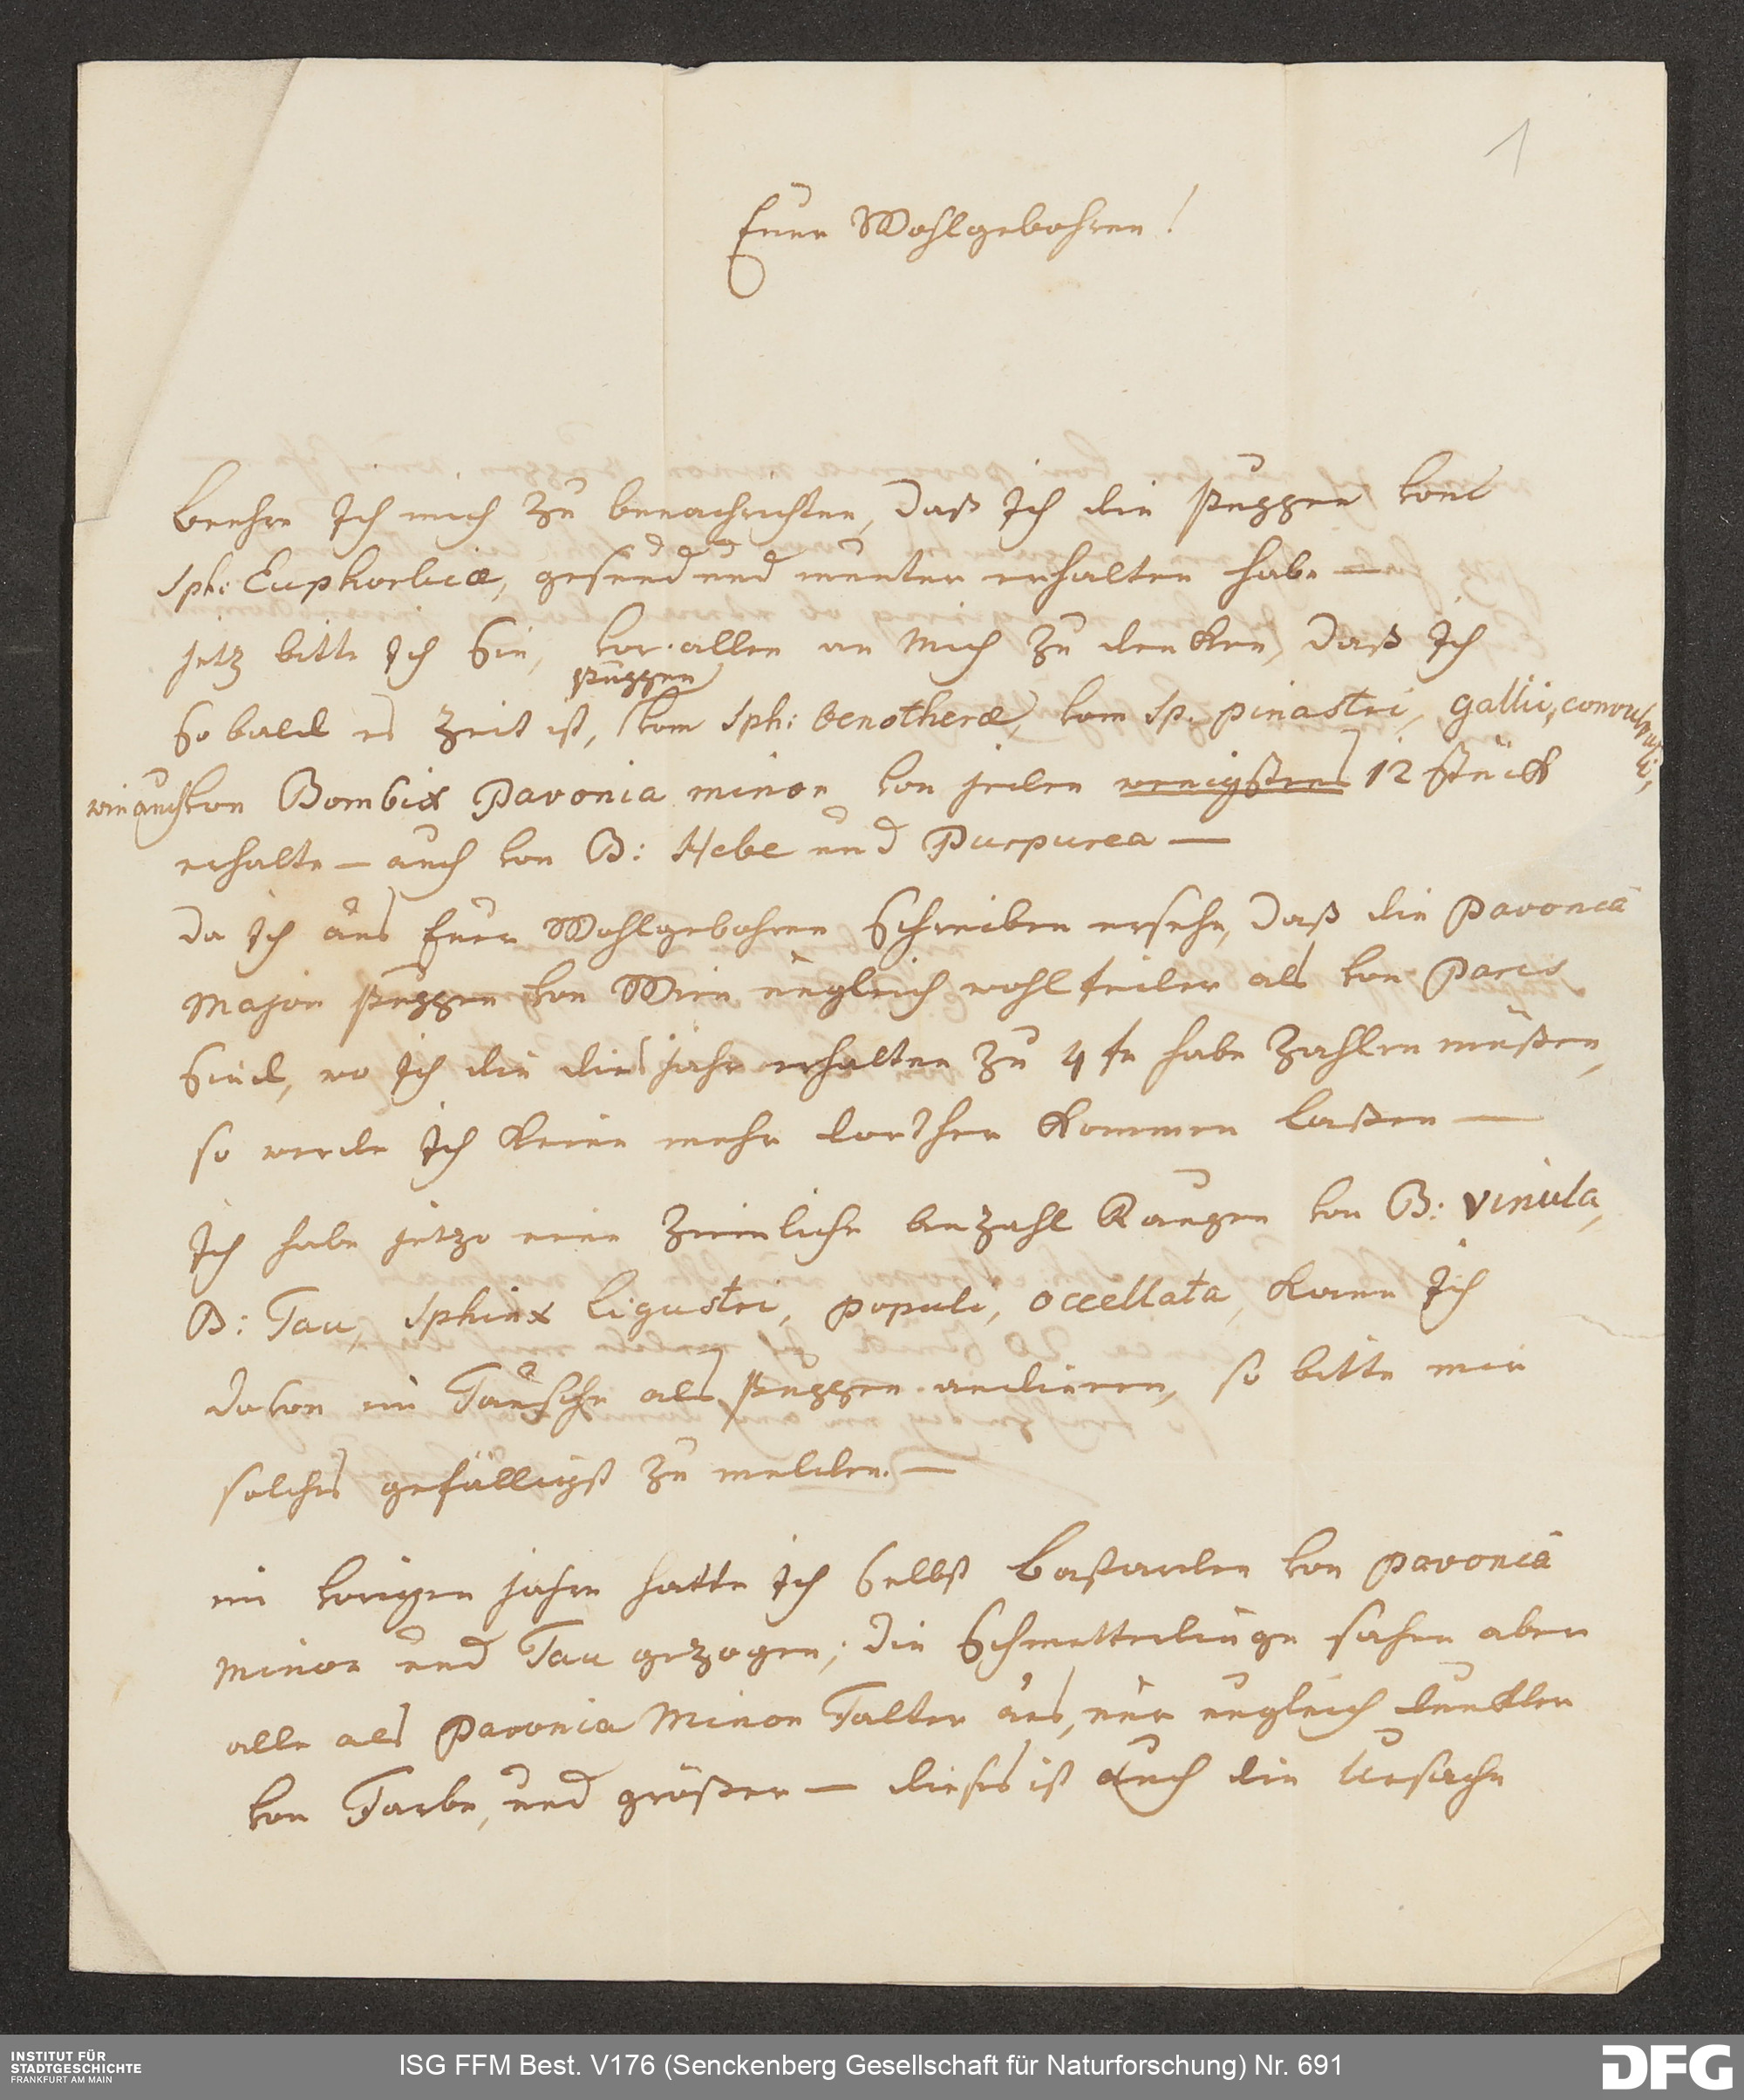 1
Euer Wohlgebohren!
beehre Ich mich zu benachrichten, daß Ich die Puppen von
Sph: Euphorbiæ, gesund und munter erhalten habe —
jetz bitte Ich Sie, vor allen an Mich zu denken, daß Ich
Puppen
So bald es Zeit ist, vom Sph: Oenotheræ, vom Sp. pinastri, gallii, convulvuli,
wie auch von Bombix Pavonia minor von jeden wenigstens 12 Stück
erhalte — auch von B: Hebe und Purpurea —
da Ich aus Euer Wohlgebohren Schreiben ersehe, daß die Pavonia
Major Puppen von Wien ungleich wohlfeiler als von Paris
Sind, wo Ich die dies Jahr erhalten zu 4 fr habe Zahlen müßen,
so werde Ich keine mehr dorther kommen laßen —
Ich habe jetzo eine Ziemliche Anzahl Raupen von B: vinula,
B: Tau, Sphinx Ligustri, populi, occellata, kann Ich
davon im Tausche als Puppen andienen, so bitte mir
solches gefälligst zu melden. —
im vorigen Jahre hatte Ich Selbst Bastarden von pavonia
minor und Tau gezogen; die Schmetterlinge sahen aber
alle als Pavonia Minor Falter aus, nur ungleich dunkler
von Farbe, und größer — dieses ist auch die Ursache
INSTITUT FÜR
STADTGESCHICHTE
FRANKFURT AM MAIN
ISG FFM Best. V176 (Senckenberg Gesellschaft für Naturforschung) Nr. 691
DFG